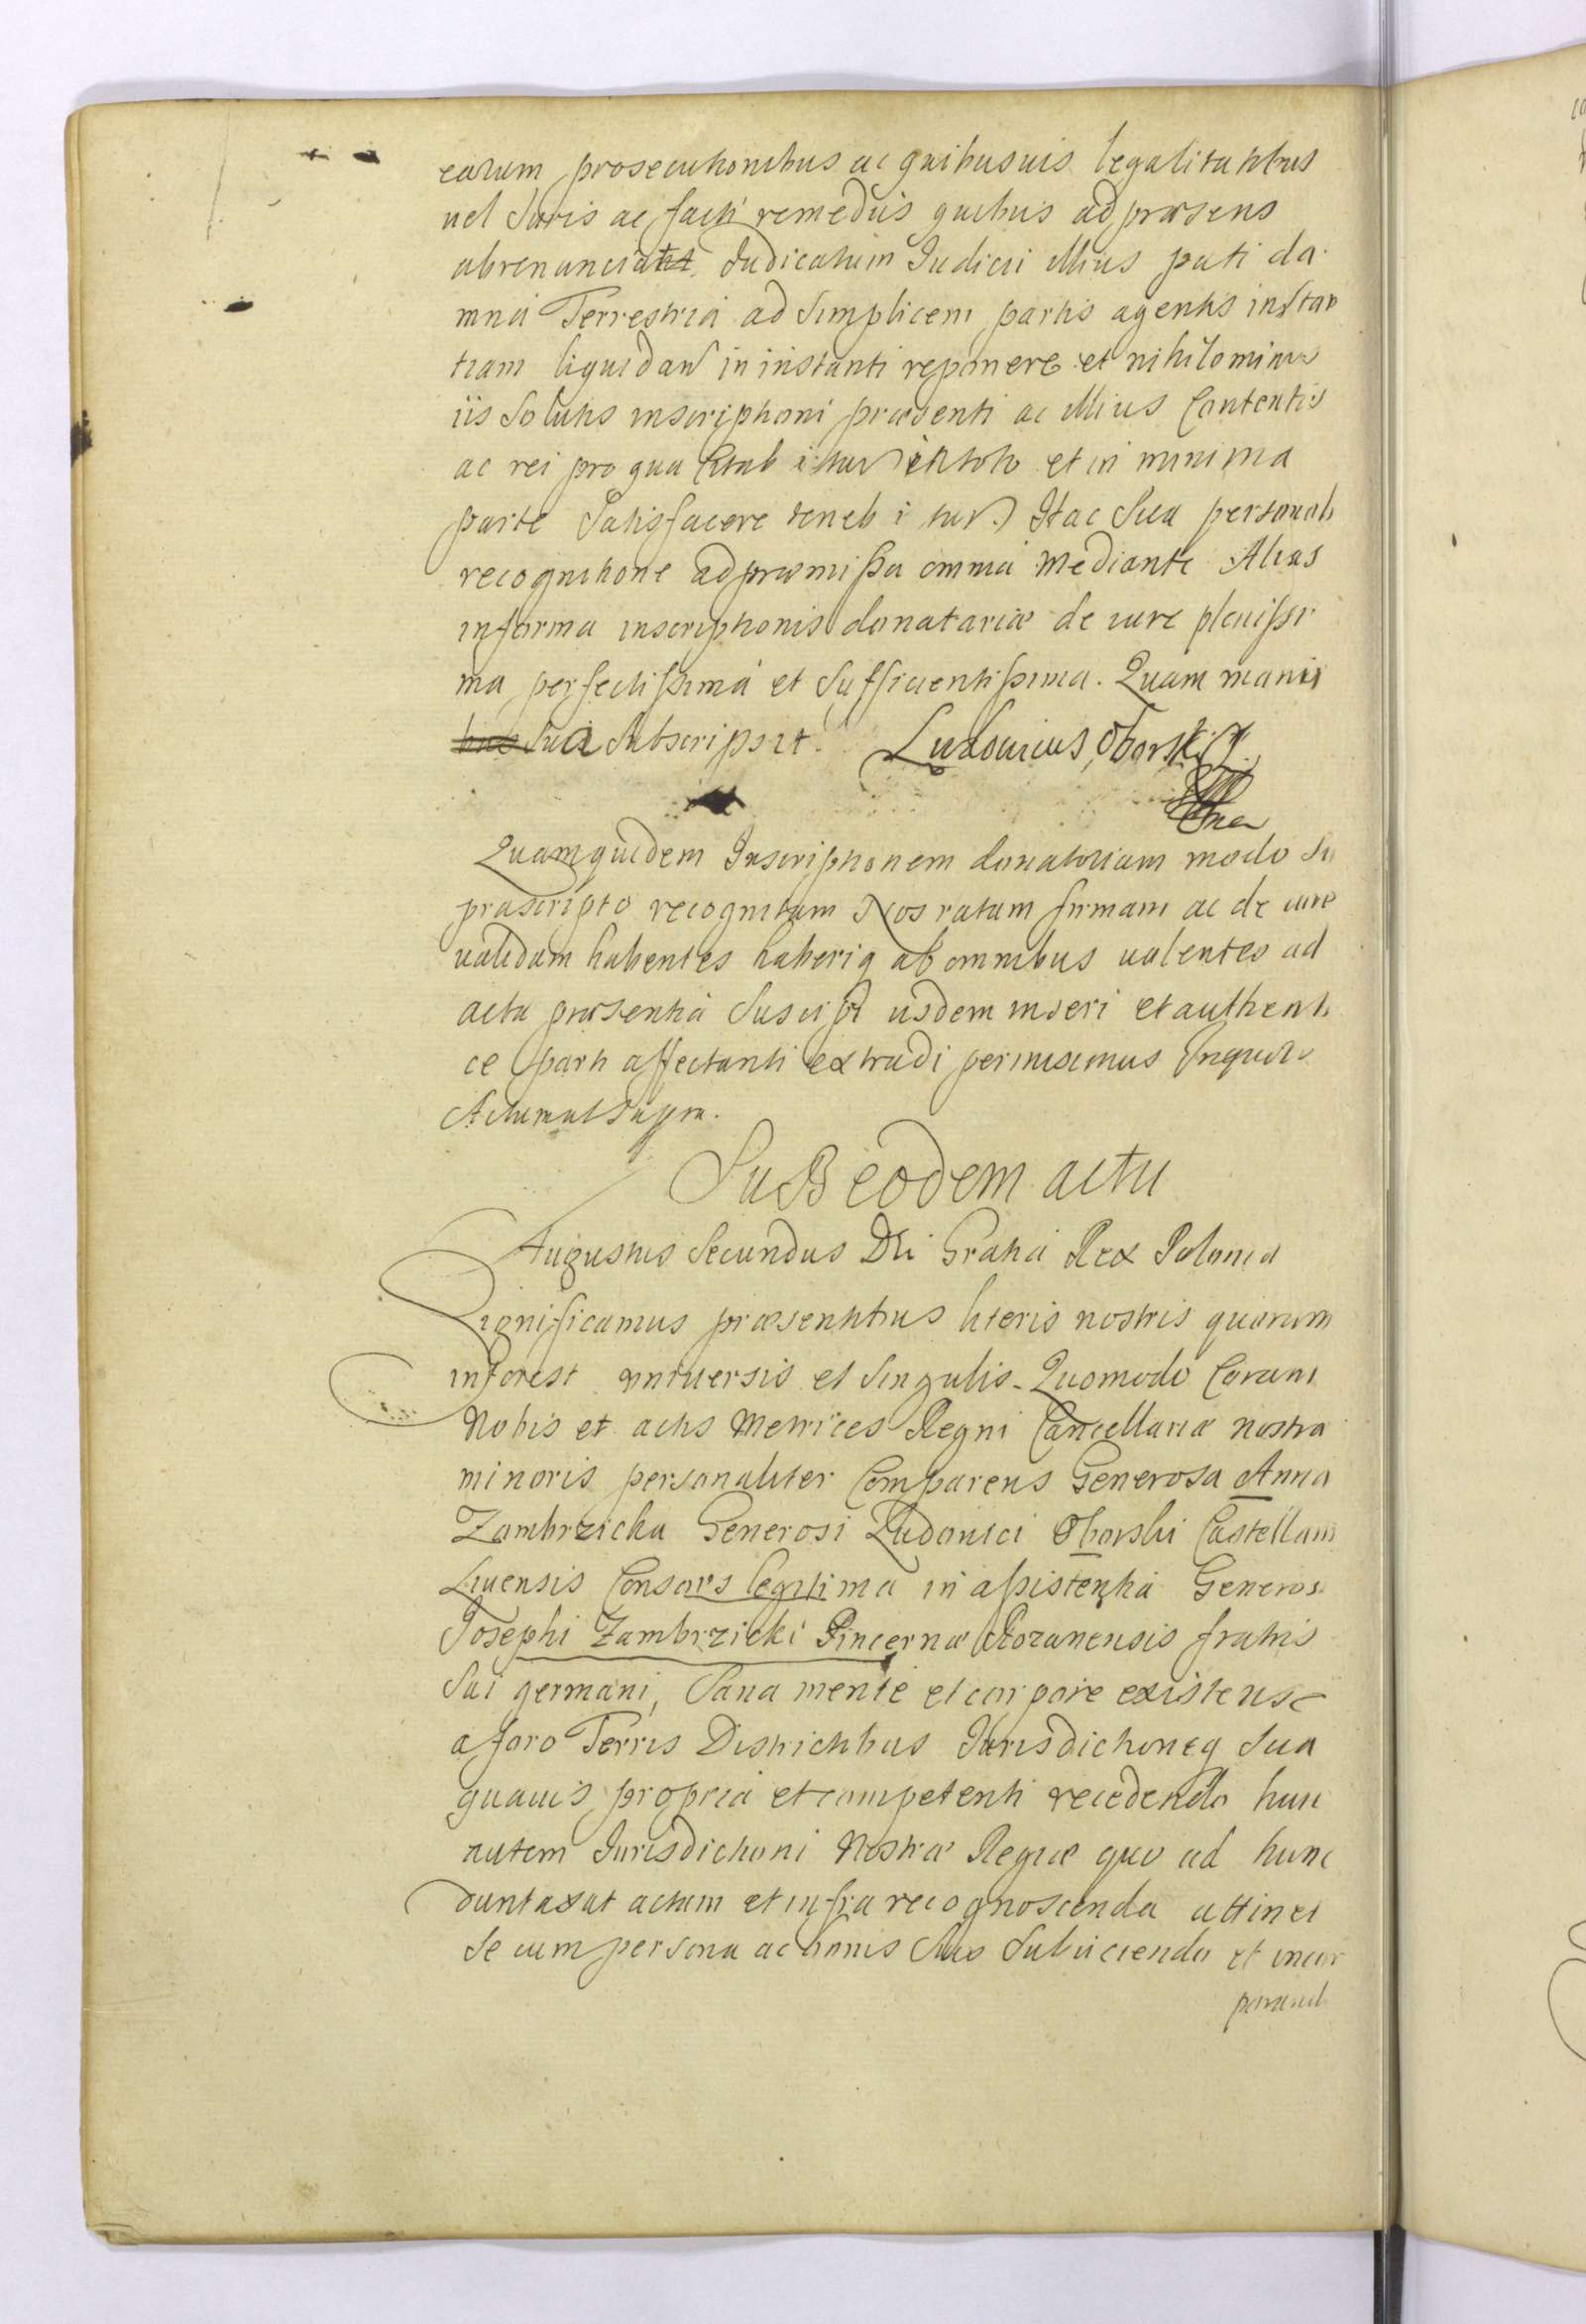 earum prosecutionibus ac quibusuis legalitatibus
uel Juris ac facti remediis quibus ad præsens
abrenunciat Judicatum Judicii illius pati da
mna Terrestria ad simplicem partis agentis instan
tiam liquidan in instanti reponere et nihilominus
iis solutis inscriptioni præsenti ac illius Contentis
ac rei pro qua Citab itur in toto et in minima
parte Satisfacere teneb i tur Hac Sua personali
recognitione ad præmissa omnia mediante Alias
in forma inscriptionis donatariæ de iure plenissi
ma perfectissima et Sufficientissima. Quam manu
sua Subscripsit. Ludouicus Oborski
Quam quidem Inscriptionem donatoriam modo su
prascripto recognitam Nos ratam firmam ac de iure
ualidam habentes haberiq ab omnibus uolentes ad
acta præsentia Suscipi iisdem inseri et authenti
ce parti affectanti extradi permisimus
Actum ut supra.
Sub eodem actu
Augustus Secundus Dei Gratia Rex Polonia
Significamus præsentibus literis nostris quorum
interest uniuersis et singulis. Quomodo Coram
Nobis et actis Metrices Regni Cancellariæ nostra
minoris personaliter Comparens Generosa Anna
Zambrzicka Generosi Ludouici Oborski Castellani
Liuensis Consors legitima in assistentia Generosi
Josephi Zambrzicki Pincernæ Rozanensis fratris
Sui germani, Sana mente et corpore existens
a foro Terris Districtibus Jurisdictioneq Sua
quauis propria et competenti recedendo huic
autem Jurisdictioni Nostræ Regiæ quo ad hunc
duntaxat actum et infra recognoscenda attinet
Se cum persona ac bonis suis Subiiciendo et incor
porand